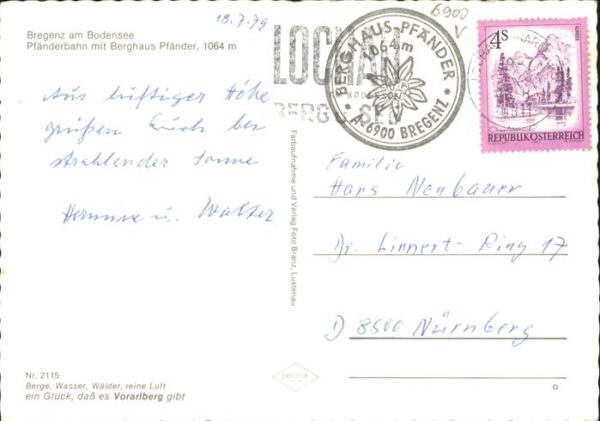 Bregenz am Bodensee
Pfänderbahn mit Berghaus Pfänder, 1064 m
18.7.79
6900
LOCHAU
BERG SEE
BERGHAUS-PFÄNDER
1064 m
BODENSEE
* A-6900 BREGENZ *
4S
REPUBLIK ÖSTERREICH
Aus luftiger Höhe
grüßen Euch bei
strahlender Sonne
Hermine u. Walter
Familie
Hans Neubauer
Dr. Linnert-Ring 17
D 8500 Nürnberg
Farbaufnahme und Verlag Foto Branz, Lustenau
Nr. 2115
Berge, Wasser, Wälder, reine Luft
ein Glück, daß es Vorarlberg gibt